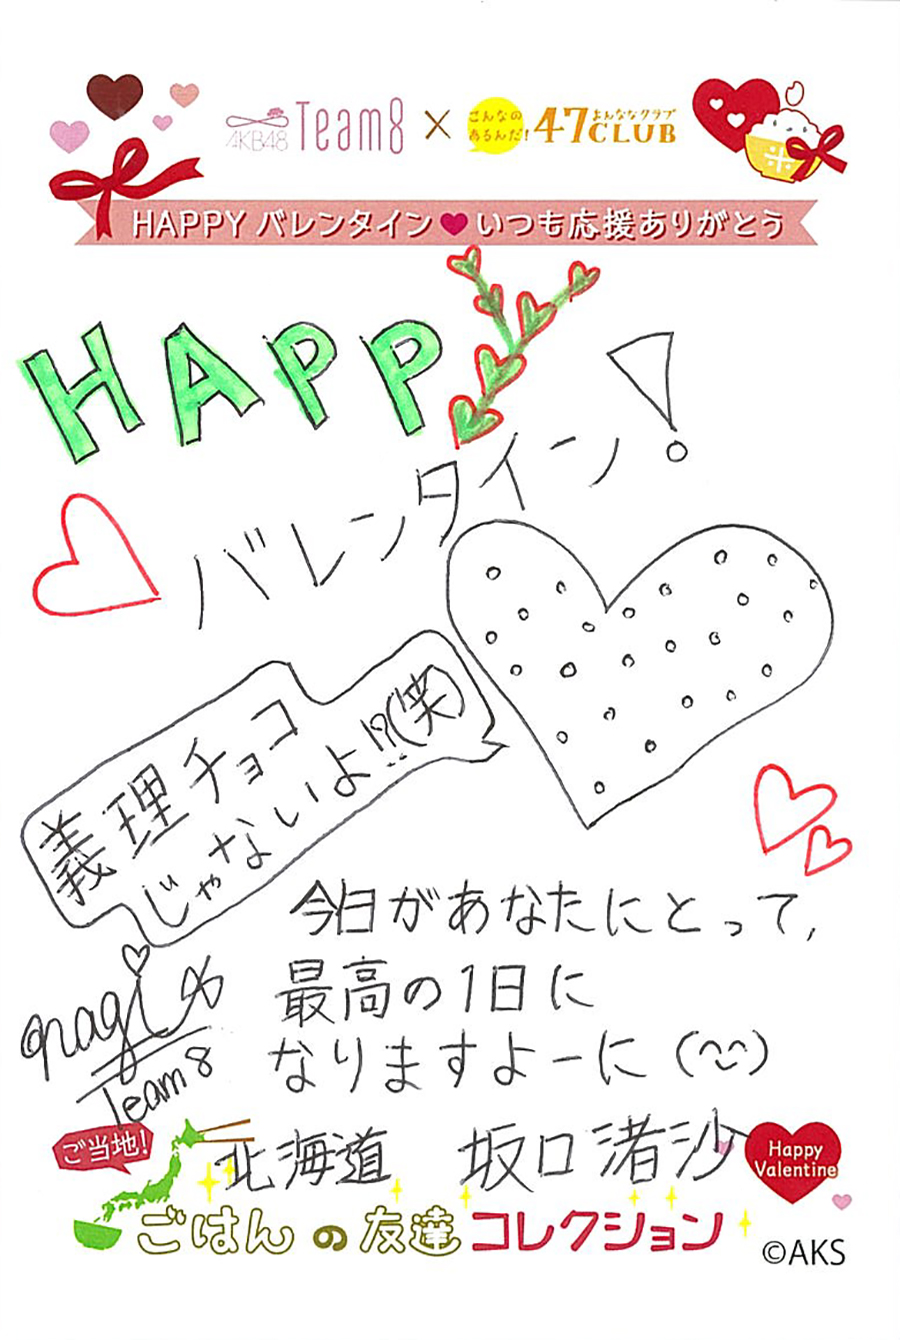 AKB48 Team8 × こんなのあるんだ! 47CLUB よんななクラブ
HAPPY バレンタイン♥いつも応援ありがとう
HAPPY
バレンタイン!
義理チョコ
じゃないよ!?(笑)
今日があなたにとって,
最高の1日に
なりますよーに(^^)
nagisa
Team 8
ご当地!
北海道 坂口渚沙
Happy
Valentine
ごはんの友達コレクション
©AKS